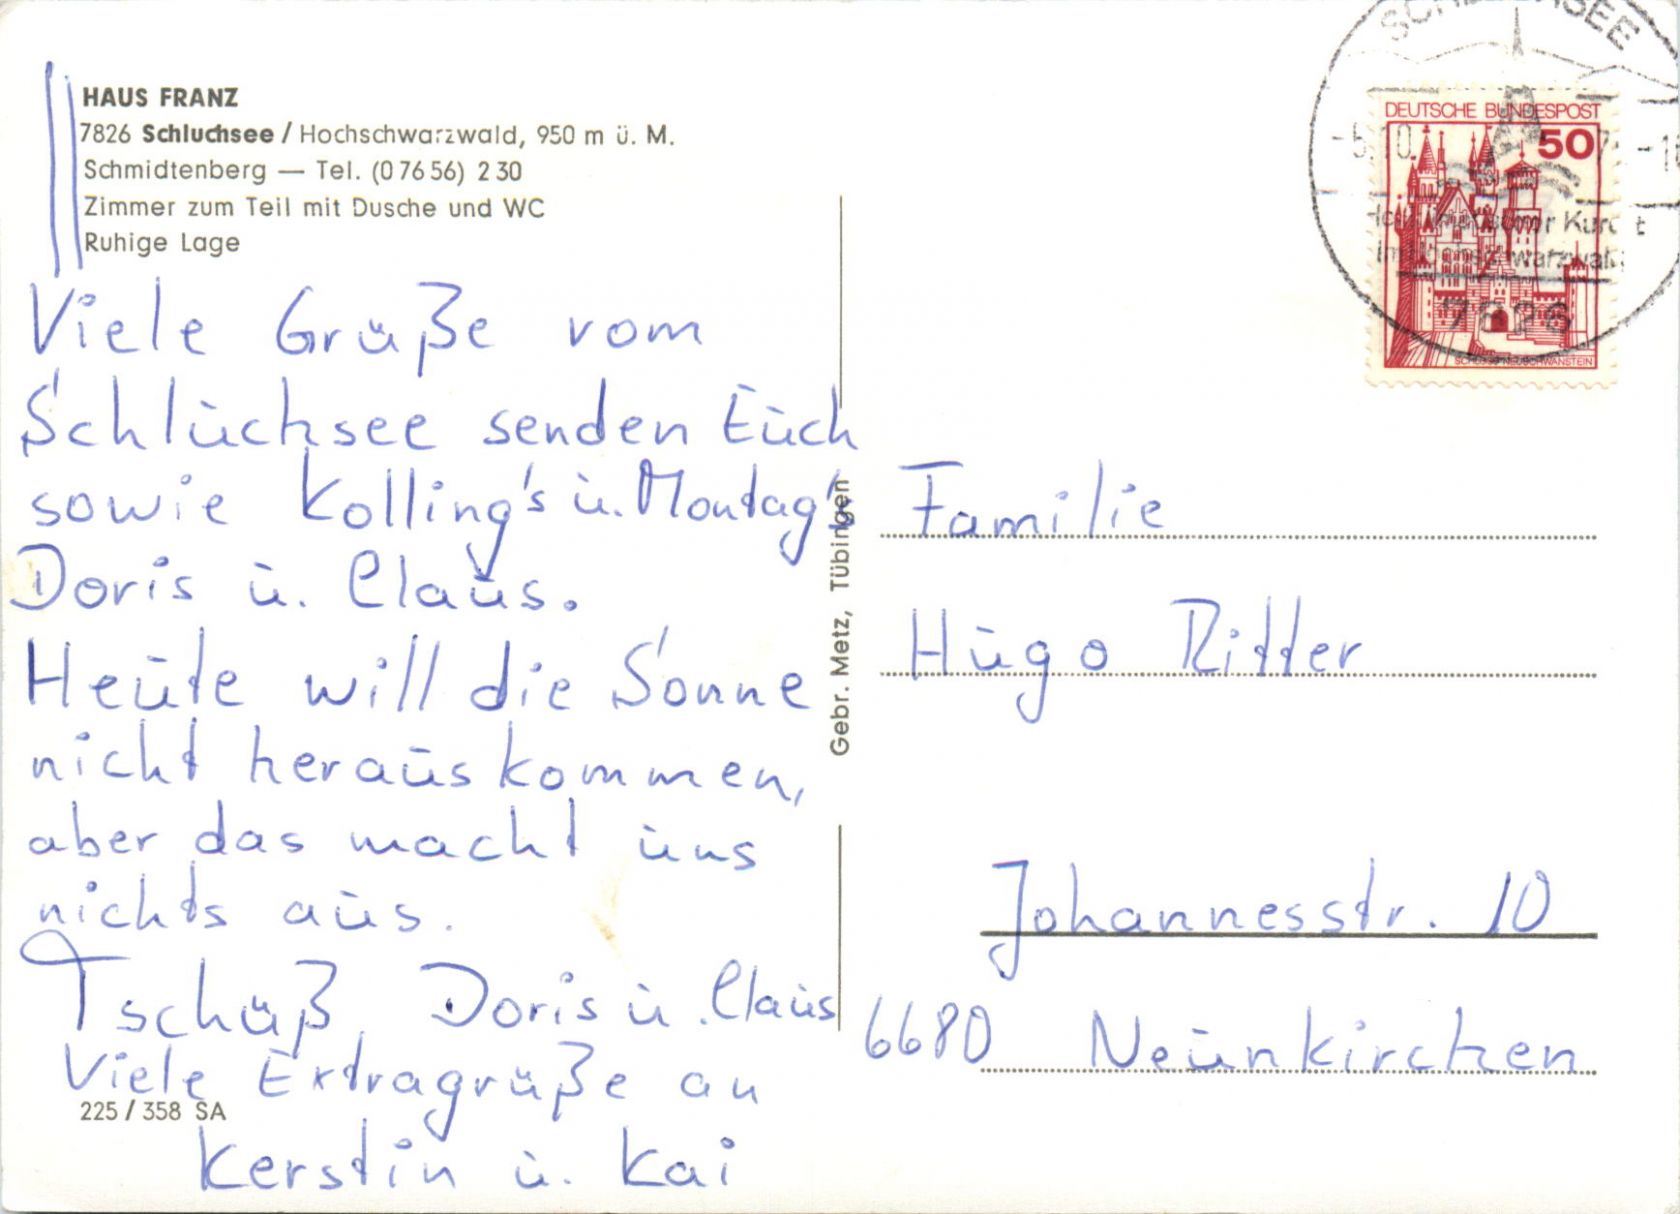 HAUS FRANZ
7826 Schluchsee / Hochschwarzwald, 950 m ü. M.
Schmidtenberg — Tel. (0 76 56) 2 30
Zimmer zum Teil mit Dusche und WC
Ruhige Lage
Viele Grüße vom
Schluchsee senden Euch
sowie Kolling's u. Montag's
Doris u. Claus.
Heute will die Sonne
nicht herauskommen,
aber das macht uns
nichts aus.
Tschüß, Doris u. Claus
Viele Extragrüße an
Kerstin u. Kai
225 / 358 SA
Gebr. Metz, Tübingen
DEUTSCHE BUNDESPOST
50
SCHLOSS NEUSCHWANSTEIN
7826
Familie
Hugo Ritter
Johannesstr. 10
6680 Neunkirchen